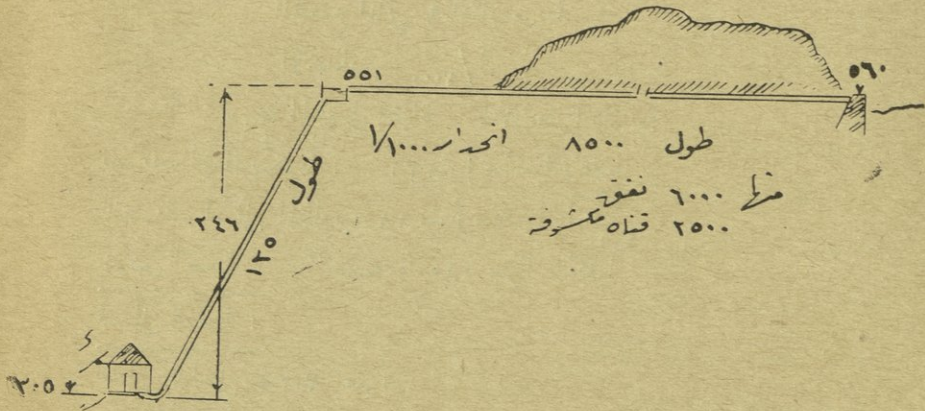 ٥٦٠
٥٥١
طول ٨٥٠٠ انحدار ١/١٠٠٠
منها ٦٠٠٠ نفق
٢٥٠٠ قناه مكشوفة
طول
١٢٥
٢٤٦
٣٠٥